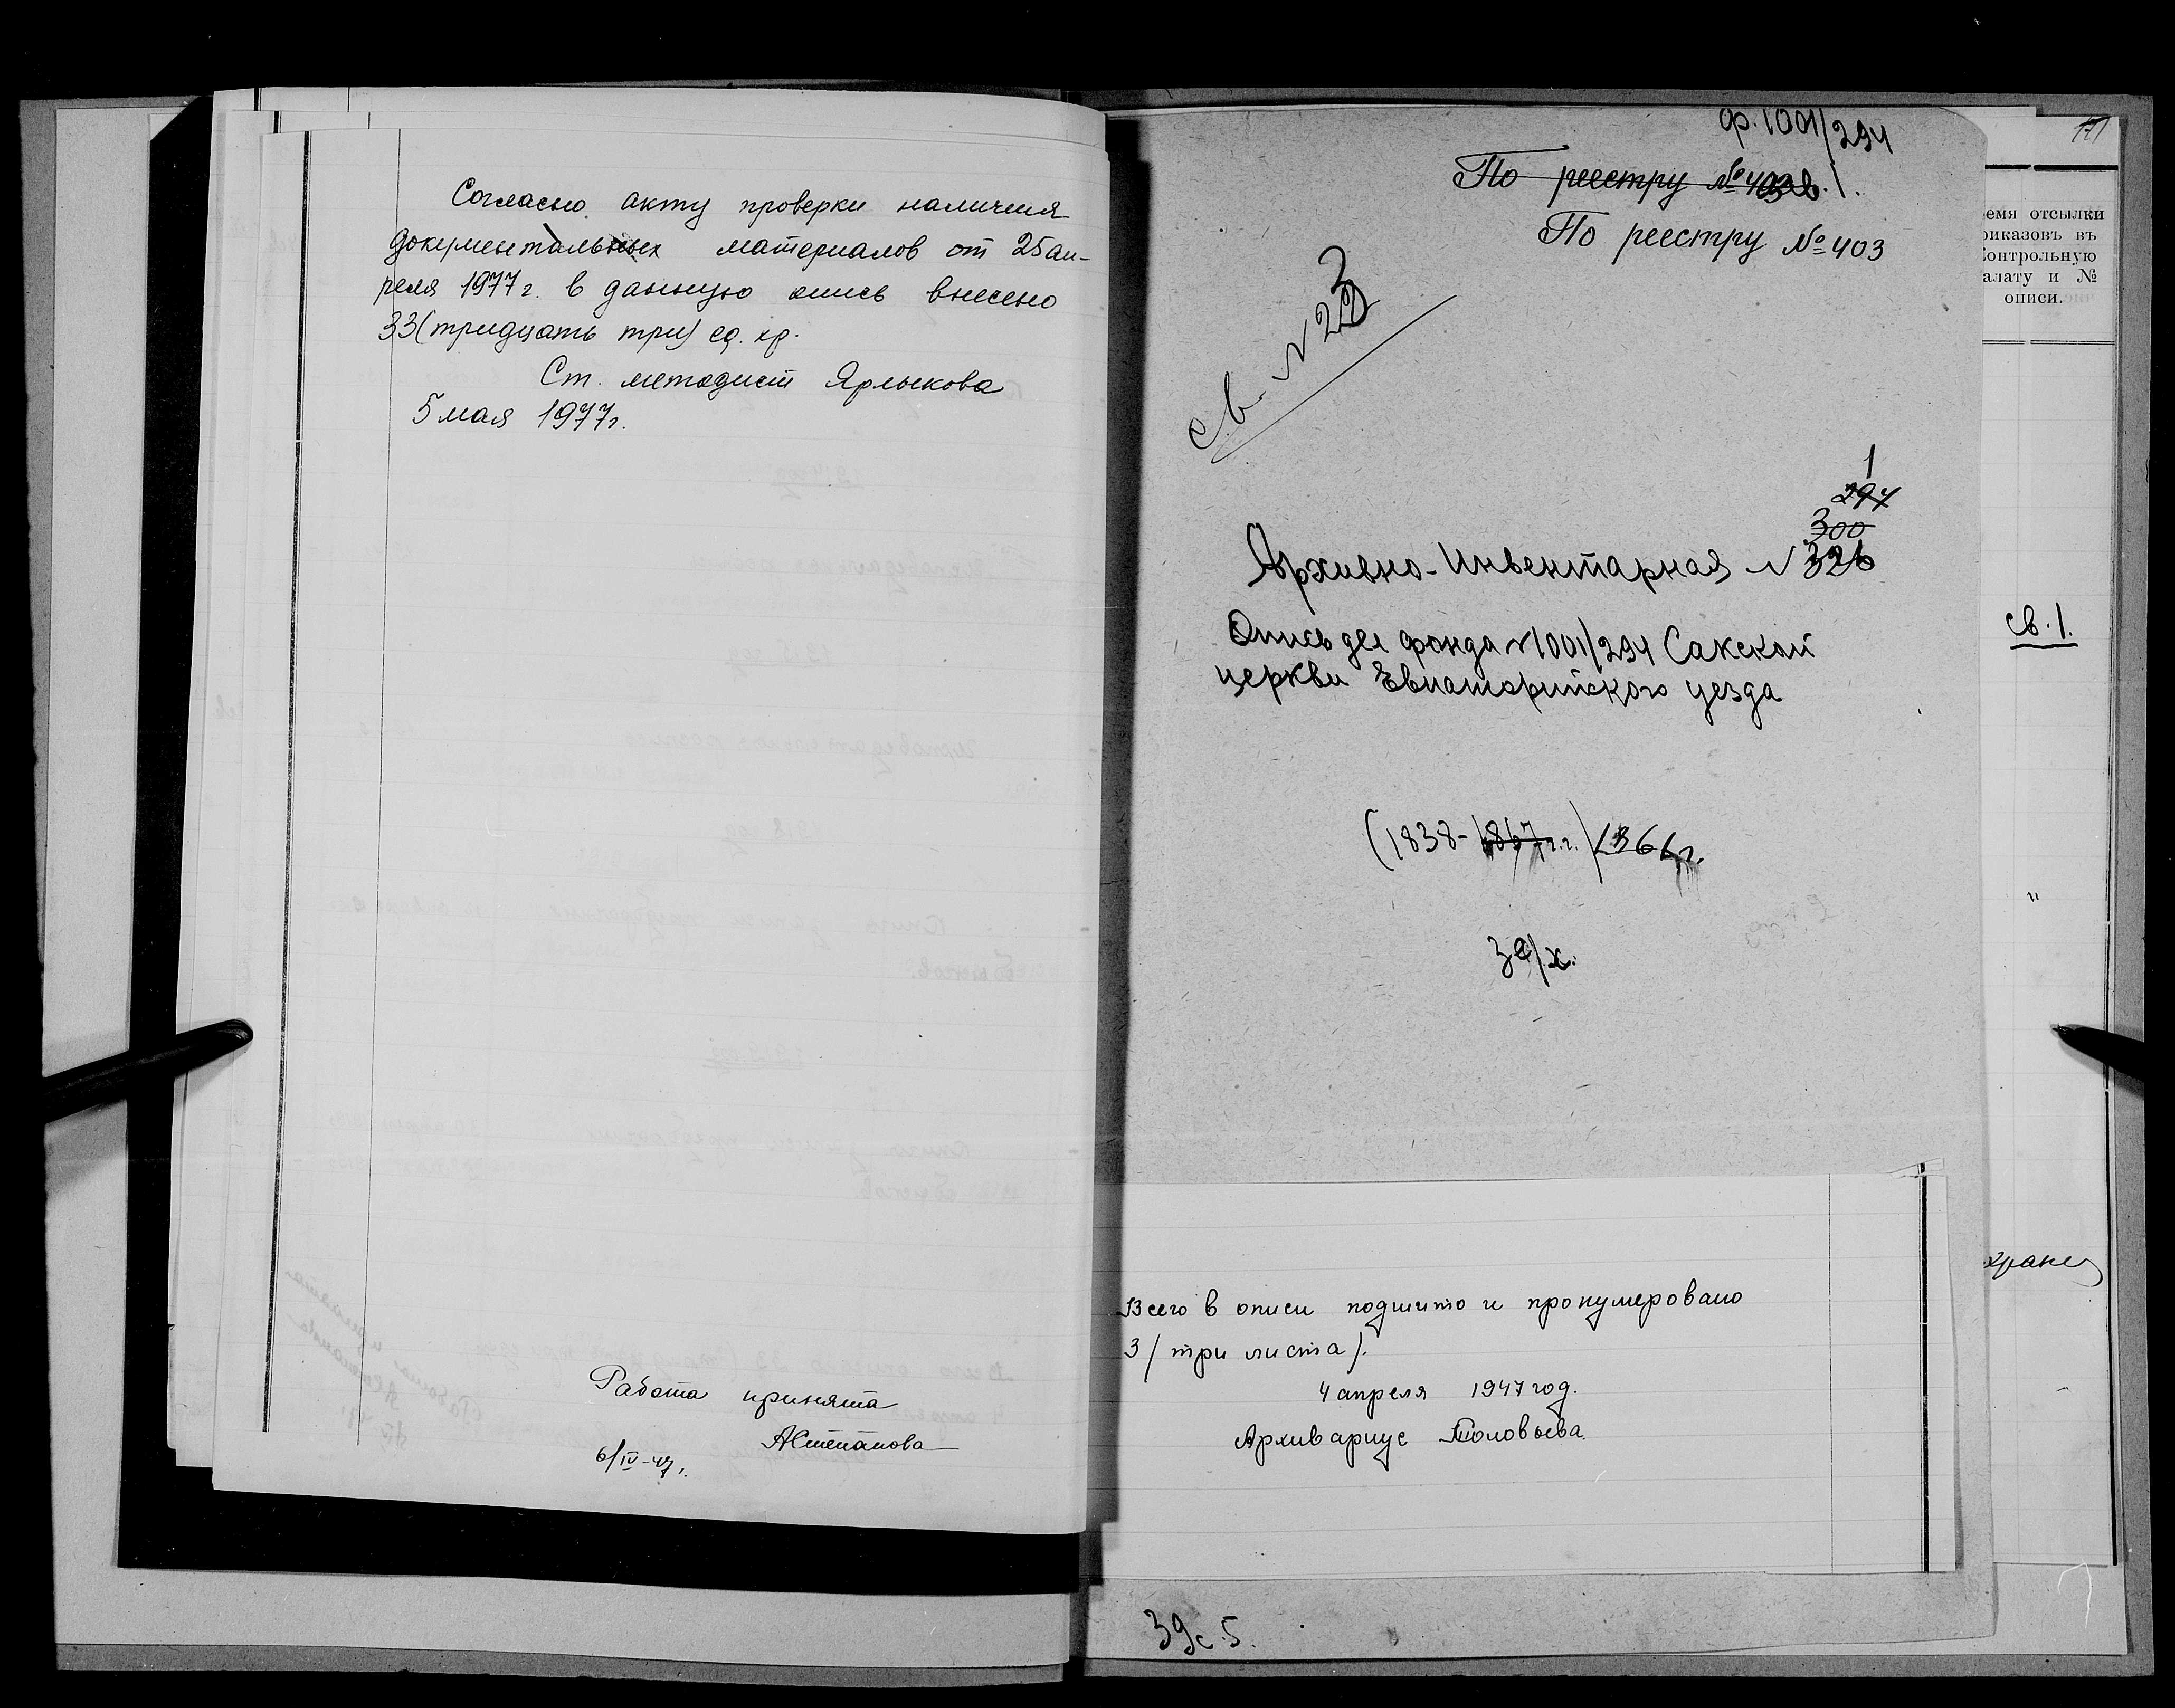 Согласно акту проверки наличия
документальных материалов от 25 ап-
реля 1977 г. в данную опись внесено
33 (тридцать три) ед. хр.
Ст. методист Ярлыкова
5 мая 1977 г.
Работа принята
АСтепанова
6/IV-47 г.
ф. 1001/294
По реестру №
По реестру № 403
св. N 23
1
294
300
Архивно-Инвентарная N 326
Опись дел фонда N 1001/294 Сакской
церкви Евпаторийского уезда
(1838-1867 г.г.) 1866 г.
Всего в описи подшито и пронумеровано
3 (три листа).
4 апреля 1947 год.
Архивариус Соловьева
39 с. 5.
емя отсылки
риказовъ въ
онтрольную
алату и №
описи.
св. 1.
"